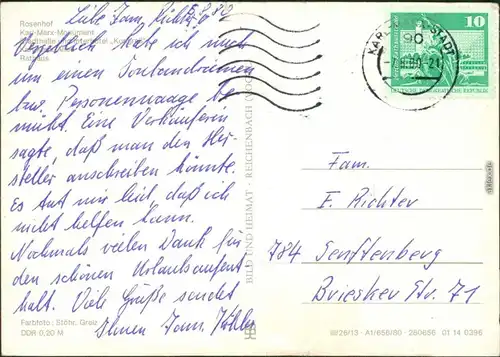 Rosenhof
Karl-Marx-Monument
Rathaus
5.8.80
Liebe Fam. Richter,
Vergeblich habe ich mich
um einen
bzw. Personenwaage be
müht. Eine Verkäuferin
sagte, daß man den Her-
steller anschreiben könnte.
Es tut mir leid, daß ich
nicht helfen kann.
Nochmals vielen Dank für
den schönen Urlaubsaufent
halt. Viele Grüße sendet
Ihnen Fam. Köhler
Farbfoto: Stöhr, Greiz
DDR 0,20 M
BILD UND HEIMAT · REICHENBACH
KARL STADT
90
10
DEUTSCHE DEMOKRATISCHE REPUBLIK
Fam.
E. Richter
784 Senftenberg
Briesker Str. 71
III/26/13 · A1/656/80 · 260656 01 14 0396